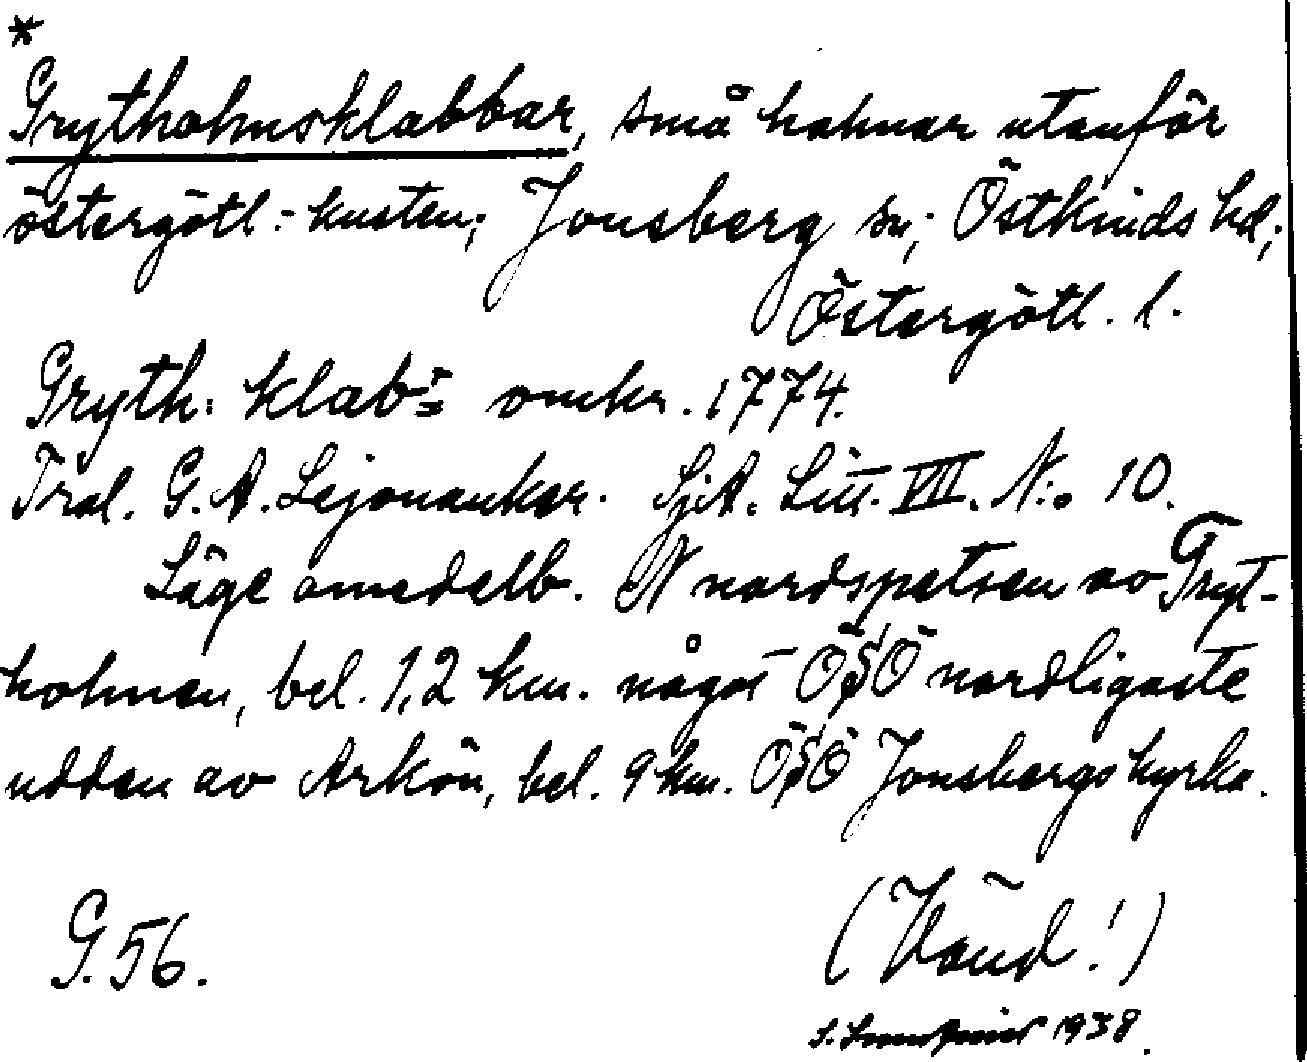 *
Grytholmsklabbar, små holmar utanför
östergötl.-kusten; Jonsberg sn; Östkinds hd;
Östergötl. l.
Gryth: klab:r omkr. 1774.
Tral. G. A. Lejonankar. SjA. Litt. VIII. N:o 10.
Läge omedelb. N nordspetsen av Gryt-
holmen, bel. 1,2 km. något ÖSÖ nordligaste
udden av Arkön, bel. 9 km. ÖSÖ Jonsbergs kyrka.
G. 56.
(Vänd!)
1938.